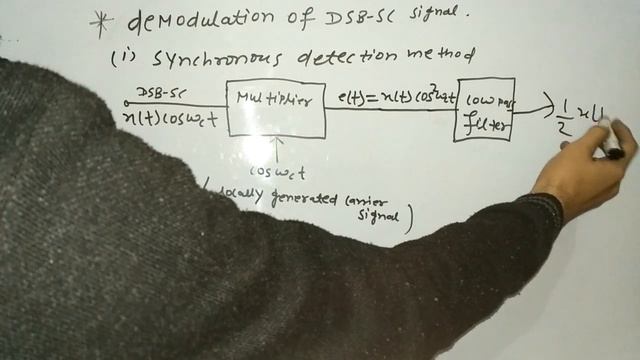 * Demodulation of DSB-SC signal.
(i) Synchronous detection method
DSB-SC
x(t) cosωct
Multiplier
e(t) = x(t) cos²ωct
Low pass
filter
1/2 x(
cosωct
(locally generated carrier
signal)